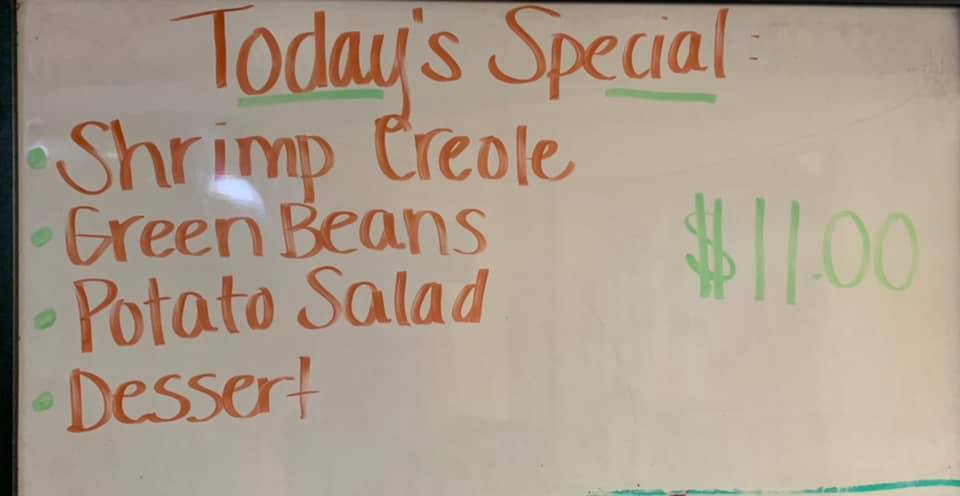 Today's Special:
• Shrimp Creole
• Green Beans
$11.00
• Potato Salad
• Dessert